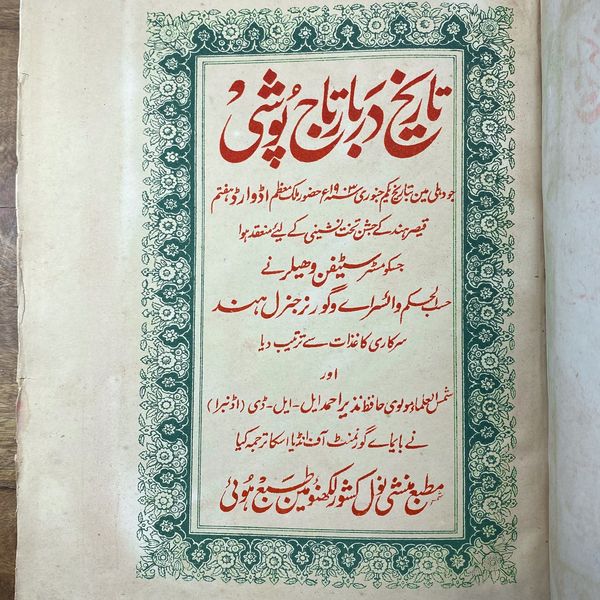 تاریخ دربار تاج پوشی
جو دہلی مین بتاریخ یکم جنوری سنہ ۱۹۰۳ء حضور ملک معظم اڈوارڈ ہفتم
قیصر ہند کے جشن تخت نشینی کے لیئے منعقد ہوا
جسکو مسٹر سٹیفن وھیلر نے
حسب الحکم وائسراے و گورنر جنرل ہند
سرکاری کاغذات سے ترتیب دیا
اور
شمس العلما مولوی حافظ نذیر احمد ایل-ایل-ڈی (اڈنبرا)
نے بایماے گورنمنٹ آف انڈیا اسکا ترجمہ کیا
مطبع منشی نول کشور لکھنؤ مین طبع ہوئی